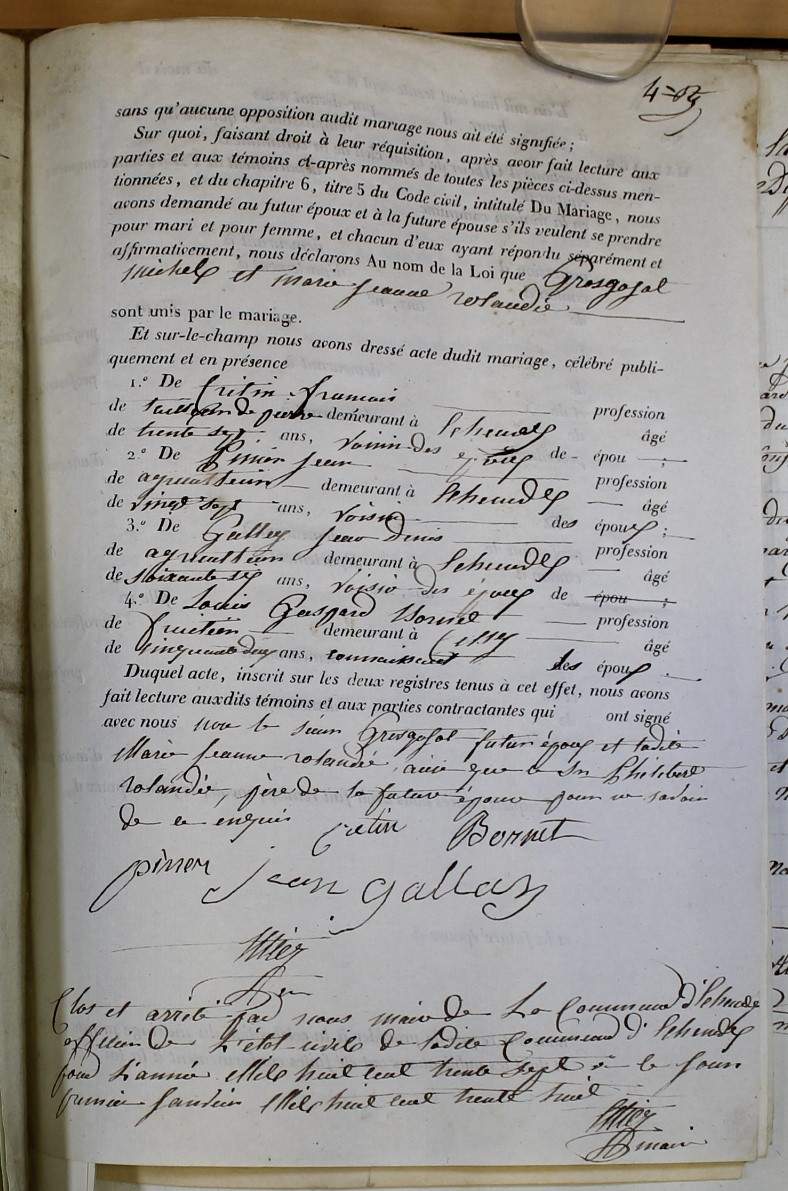 sans qu'aucune opposition audit mariage nous ait été signifiée ;
Sur quoi, faisant droit à leur réquisition, après avoir fait lecture aux
parties et aux témoins ci-après nommés de toutes les pièces ci-dessus men-
tionnées, et du chapitre 6, titre 5 du Code civil, intitulé Du Mariage, nous
avons demandé au futur époux et à la future épouse s'ils veulent se prendre
pour mari et pour femme, et chacun d'eux ayant répondu séparément et
affirmativement, nous déclarons Au nom de la Loi que Grosgojal
michel et marie jeanne rolandie
sont unis par le mariage.
Et sur-le-champ nous avons dressé acte dudit mariage, célébré publi-
quement et en présence
1.° De Critin francois profession
de tailleur de pierre demeurant à âgé
de trente sept ans, voisin des époux de épou ;
2.° De jean profession
de demeurant à âgé
de vingt sept ans, voisin des époux ;
3.° De Gallay jean Denis profession
de demeurant à âgé
de soixante six ans, voisin des époux de épou ;
4.° De Louis Gaspard Bornet profession
de fruitier demeurant à âgé
de cinquante deux ans, connaissant des époux
Duquel acte, inscrit sur les deux registres tenus à cet effet, nous avons
fait lecture auxdits témoins et aux parties contractantes qui ont signé
avec nous non le sieur Grosgojal futur époux et ladite
Marie jeanne rolandie, ainsi que le Sr Philibert
rolandie, père de la future épouse pour ne savoir
de ce enquis Critin Bornet
jean Gallay
Clos et arrêté par nous maire de La Commune
officier de L'état civil de ladite Commune
pour L'année Mil huit cent trente sept le jour
premier janvier Mil huit cent trente huit
maire